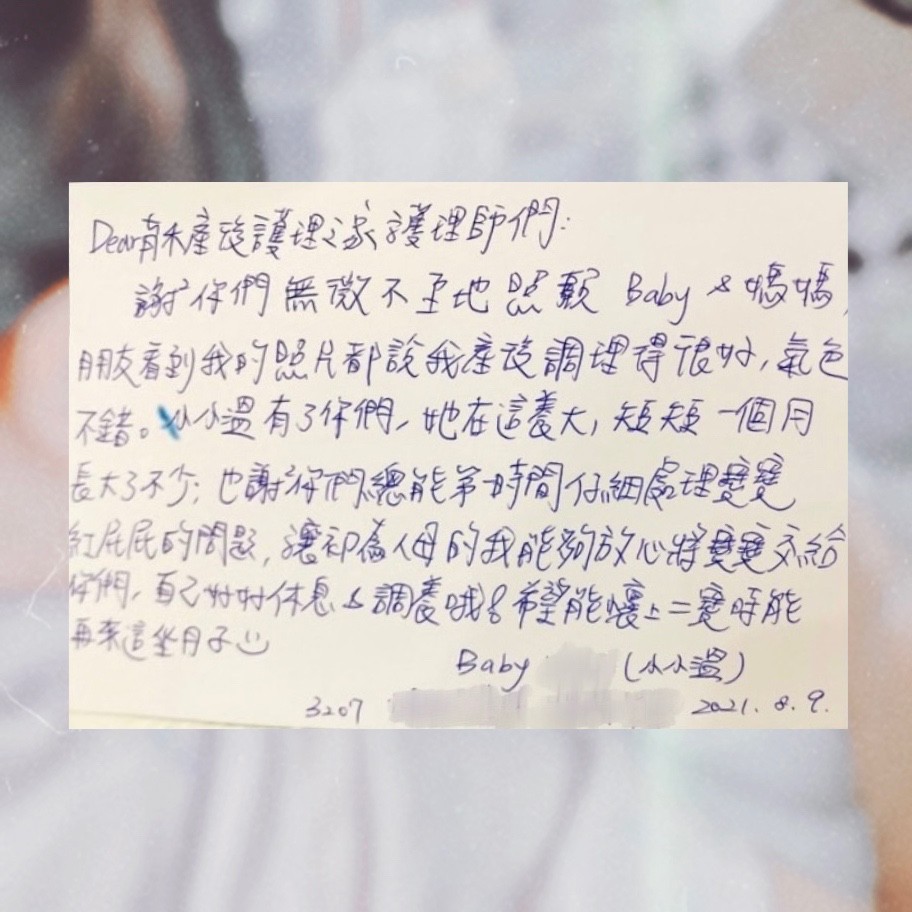 Dear青禾產後護理之家護理師們:
謝謝你們無微不至地照顧 Baby & 媽媽,
朋友看到我的照片都說我產後調理得很好, 氣色
不錯。小小溫有了你們, 她在這養大, 短短一個月
長大了不少; 也謝謝你們總能第一時間仔細處理寶寶
紅屁屁的問題, 讓初為人母的我能夠放心將寶寶交給
你們, 自己好好休息&調養哦! 希望能懷上二寶時能
再來這坐月子
Baby (小小溫)
3207 2021. 8. 9.